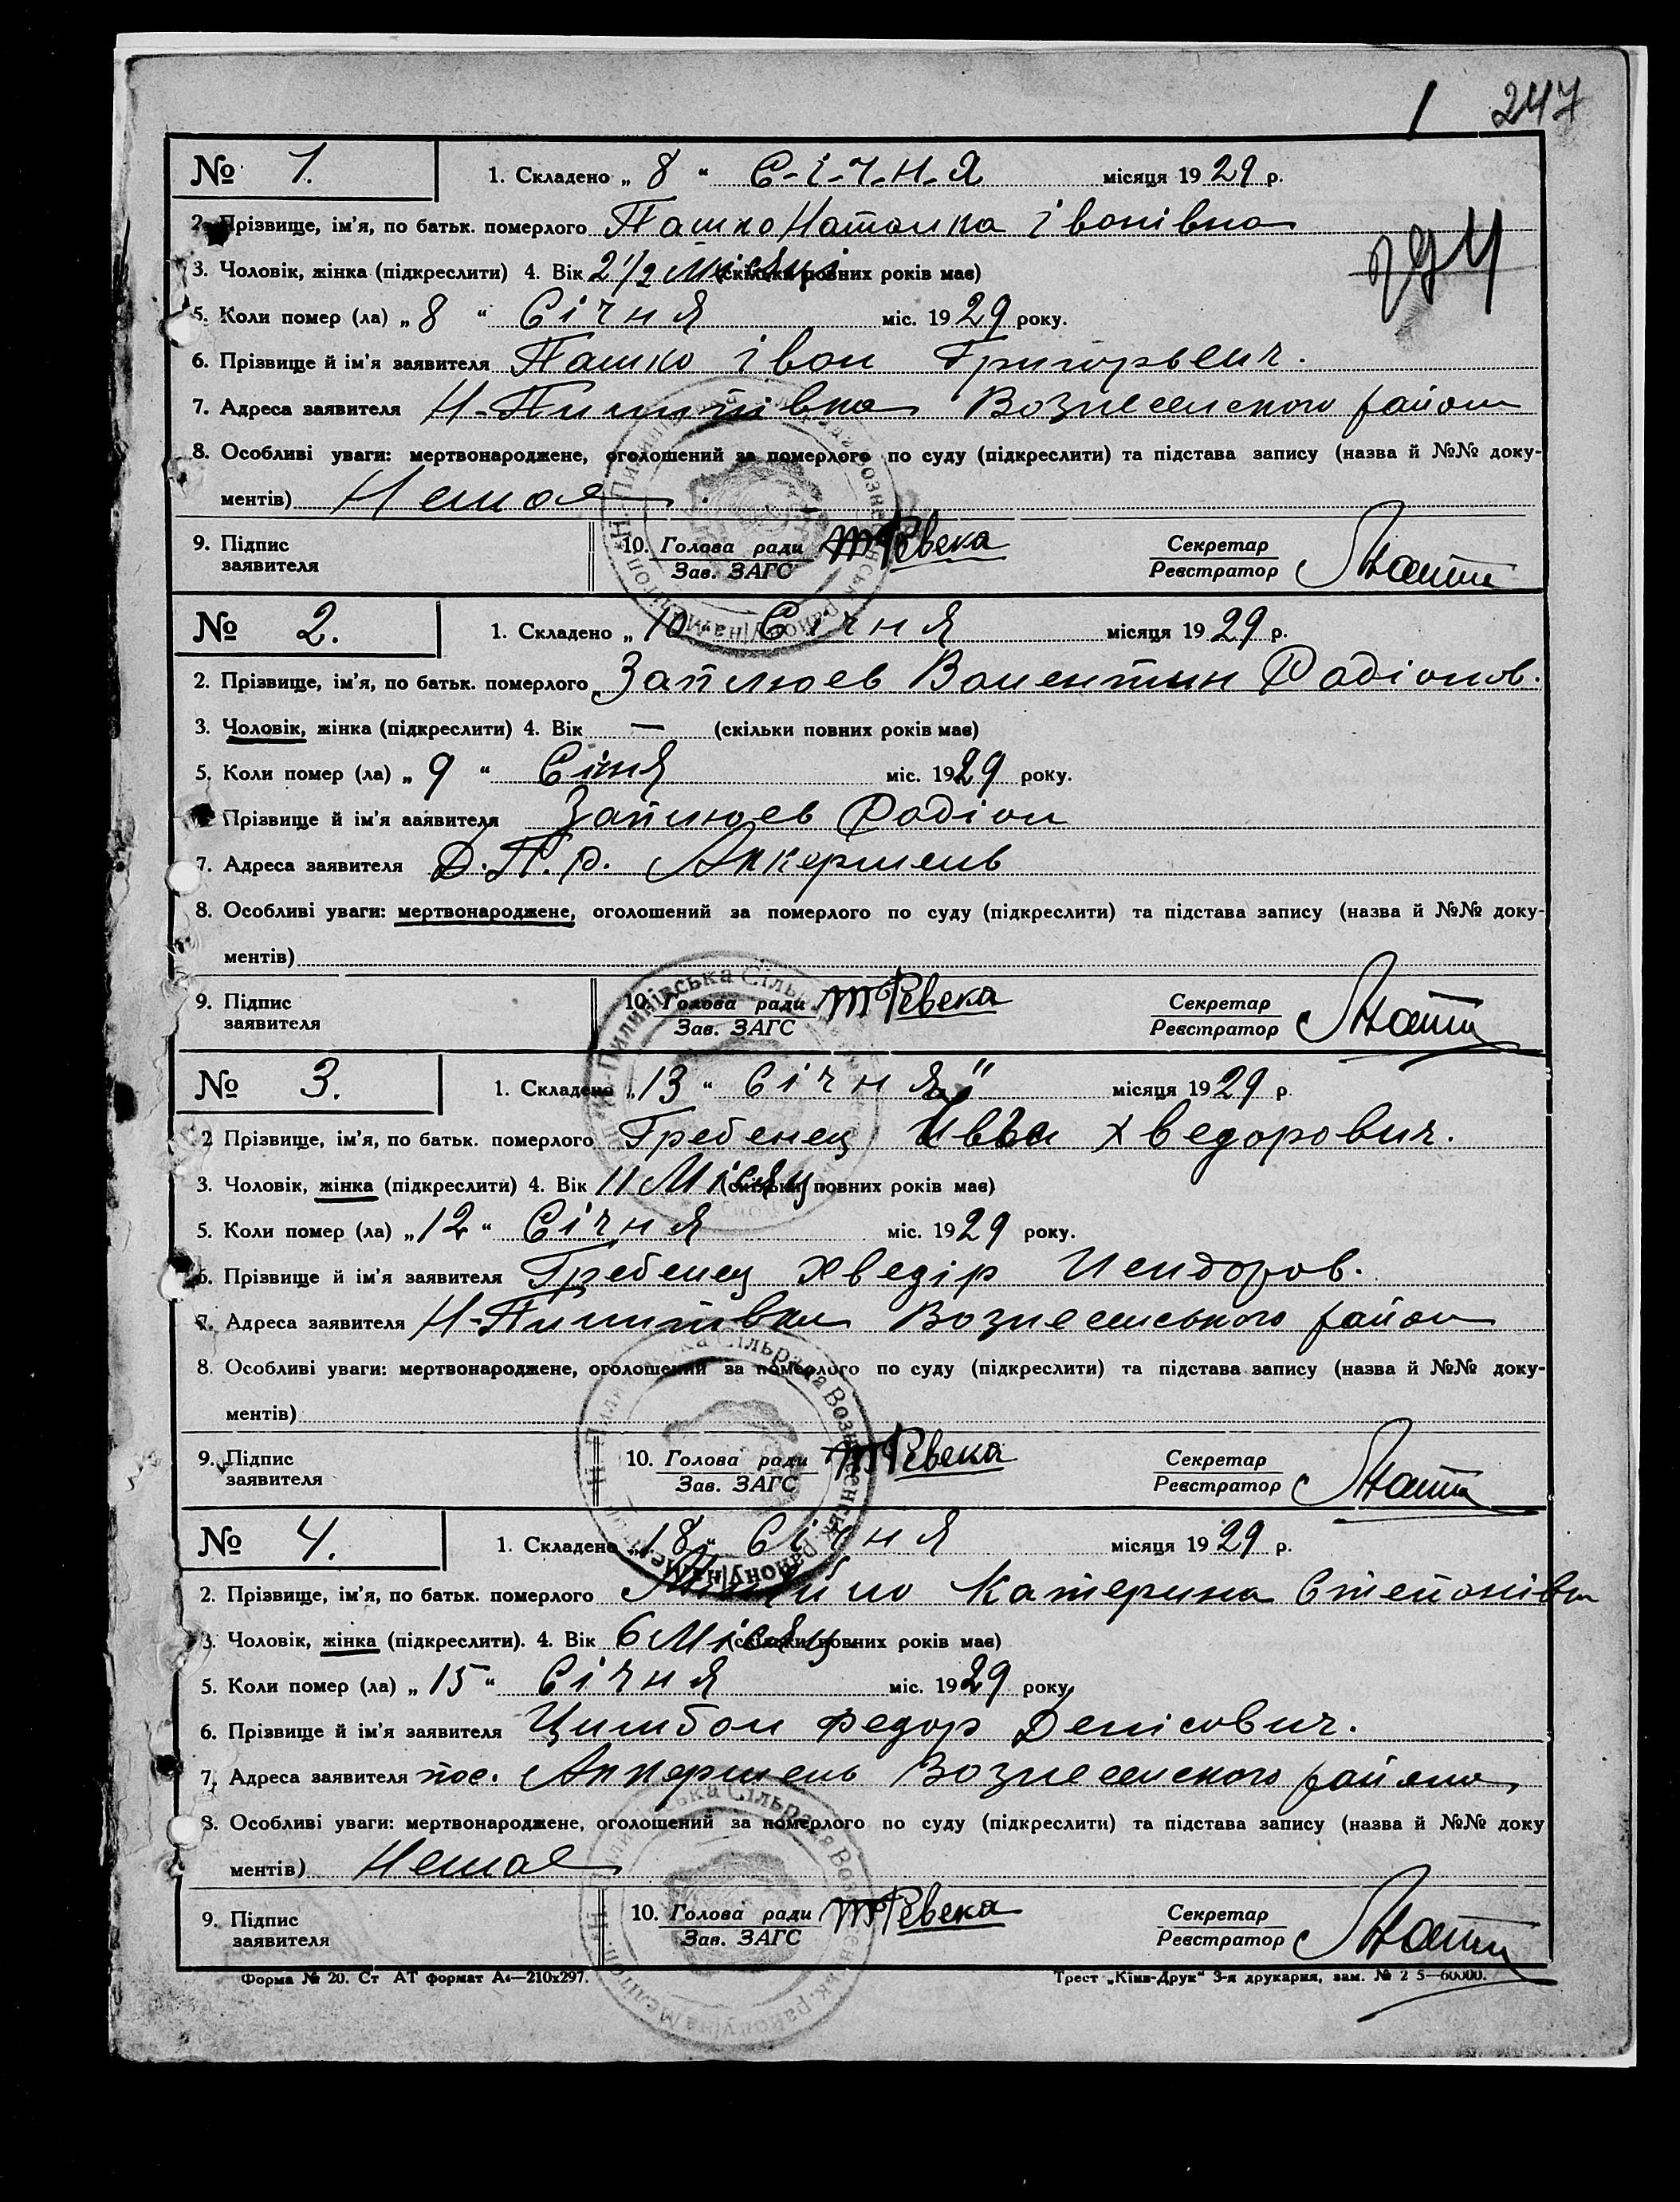 1 247
№ 1. 1. Складено „ 8 “ С-і-ч-н-я місяця 1929 р.
2. Прізвище, ім’я, по батьк. померлого Пашко Наталка Іванівна
3. Чоловік, жінка (підкреслити) 4. Вік 2 1/2 місяці (скільки повних років має)
5. Коли помер (ла) „ 8 “ Січня міс. 1929 року.
6. Прізвище й ім’я заявителя Пашко Іван Григорьевич.
7. Адреса заявителя Н-Пилипівка Вознесенского району
8. Особливі уваги: мертвонароджене, оголошений за померлого по суду (підкреслити) та підстава запису (назва й №№ доку-
ментів) Немає
9. Підпис 10. Голова ради Ревека Секретар
заявителя Зав. ЗАГС Реєстратор
№ 2. 1. Складено „ 10 “ Січня місяця 1929 р.
2. Прізвище, ім’я, по батьк. померлого Заплюев Валентин Радіонов.
3. Чоловік, жінка (підкреслити) 4. Вік — (скільки повних років має)
5. Коли помер (ла) „ 9 “ Січня міс. 1929 року.
Прізвище й ім’я заявителя Заплюев Радіон
7. Адреса заявителя Д.П.р. Апкершень
8. Особливі уваги: мертвонароджене, оголошений за померлого по суду (підкреслити) та підстава запису (назва й №№ доку-
ментів)
9. Підпис 10. Голова ради Ревека Секретар
заявителя Зав. ЗАГС Реєстратор
№ 3. 1. Складено „ 13 “ Січня місяця 1929 р.
2 Прізвище, ім’я, по батьк. померлого Гребенец Хведорович.
3. Чоловік, жінка (підкреслити) 4. Вік 11 Місяц. (скільки повних років має)
5. Коли помер (ла) „ 12 “ Січня міс. 1929 року.
6. Прізвище й ім’я заявителя Гребенец Хведір
7. Адреса заявителя Н-Пилипівка Вознесенського району
8. Особливі уваги: мертвонароджене, оголошений за померлого по суду (підкреслити) та підстава запису (назва й №№ доку-
ментів)
9. Підпис 10. Голова ради Ревека Секретар
заявителя Зав. ЗАГС Реєстратор
№ 4. 1. Складено „ 18 “ Січня місяця 1929 р.
2. Прізвище, ім’я, по батьк. померлого Катерина Степанівна
3. Чоловік, жінка (підкреслити). 4. Вік 6 Місяц (скільки повних років має)
5. Коли помер (ла) „ 15 “ Січня міс. 1929 року
6. Прізвище й ім’я заявителя Цимбал Федор Денісович.
7. Адреса заявителя пос. Апкершень Вознесенского району
8. Особливі уваги: мертвонароджене, оголошений за померлого по суду (підкреслити) та підстава запису (назва й №№ доку
ментів) Немає
9. Підпис 10. Голова ради Ревека Секретар
заявителя Зав. ЗАГС Реєстратор
Форма № 20. Ст АТ формат А4—210х297. Трест „Київ-Друк“ 3-я друкарня, зам. № 2 5—60000.